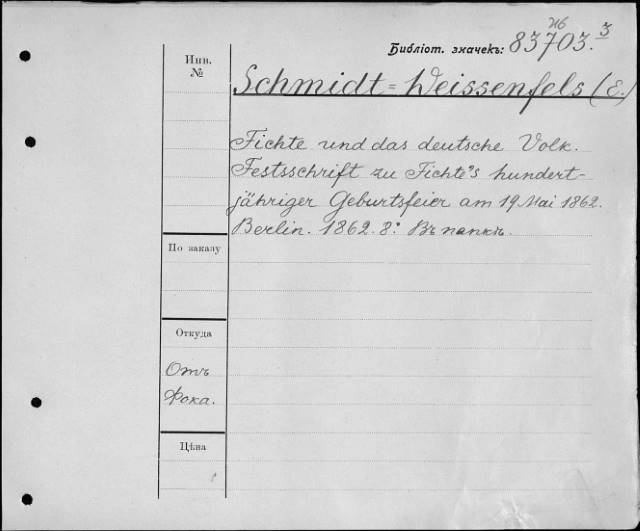 Библіот. значекъ: 83703.3
Инв.
№
Schmidt=Weissenfels (E.)
Fichte und das deutsche Volk.
Festsschrift zu Fichte's hundert-
jähriger Geburtsfeier am 19 Mai 1862.
Berlin. 1862. 8º. Въ папкѣ.
По заказу
Откуда
Отъ
Фока.
Цѣна